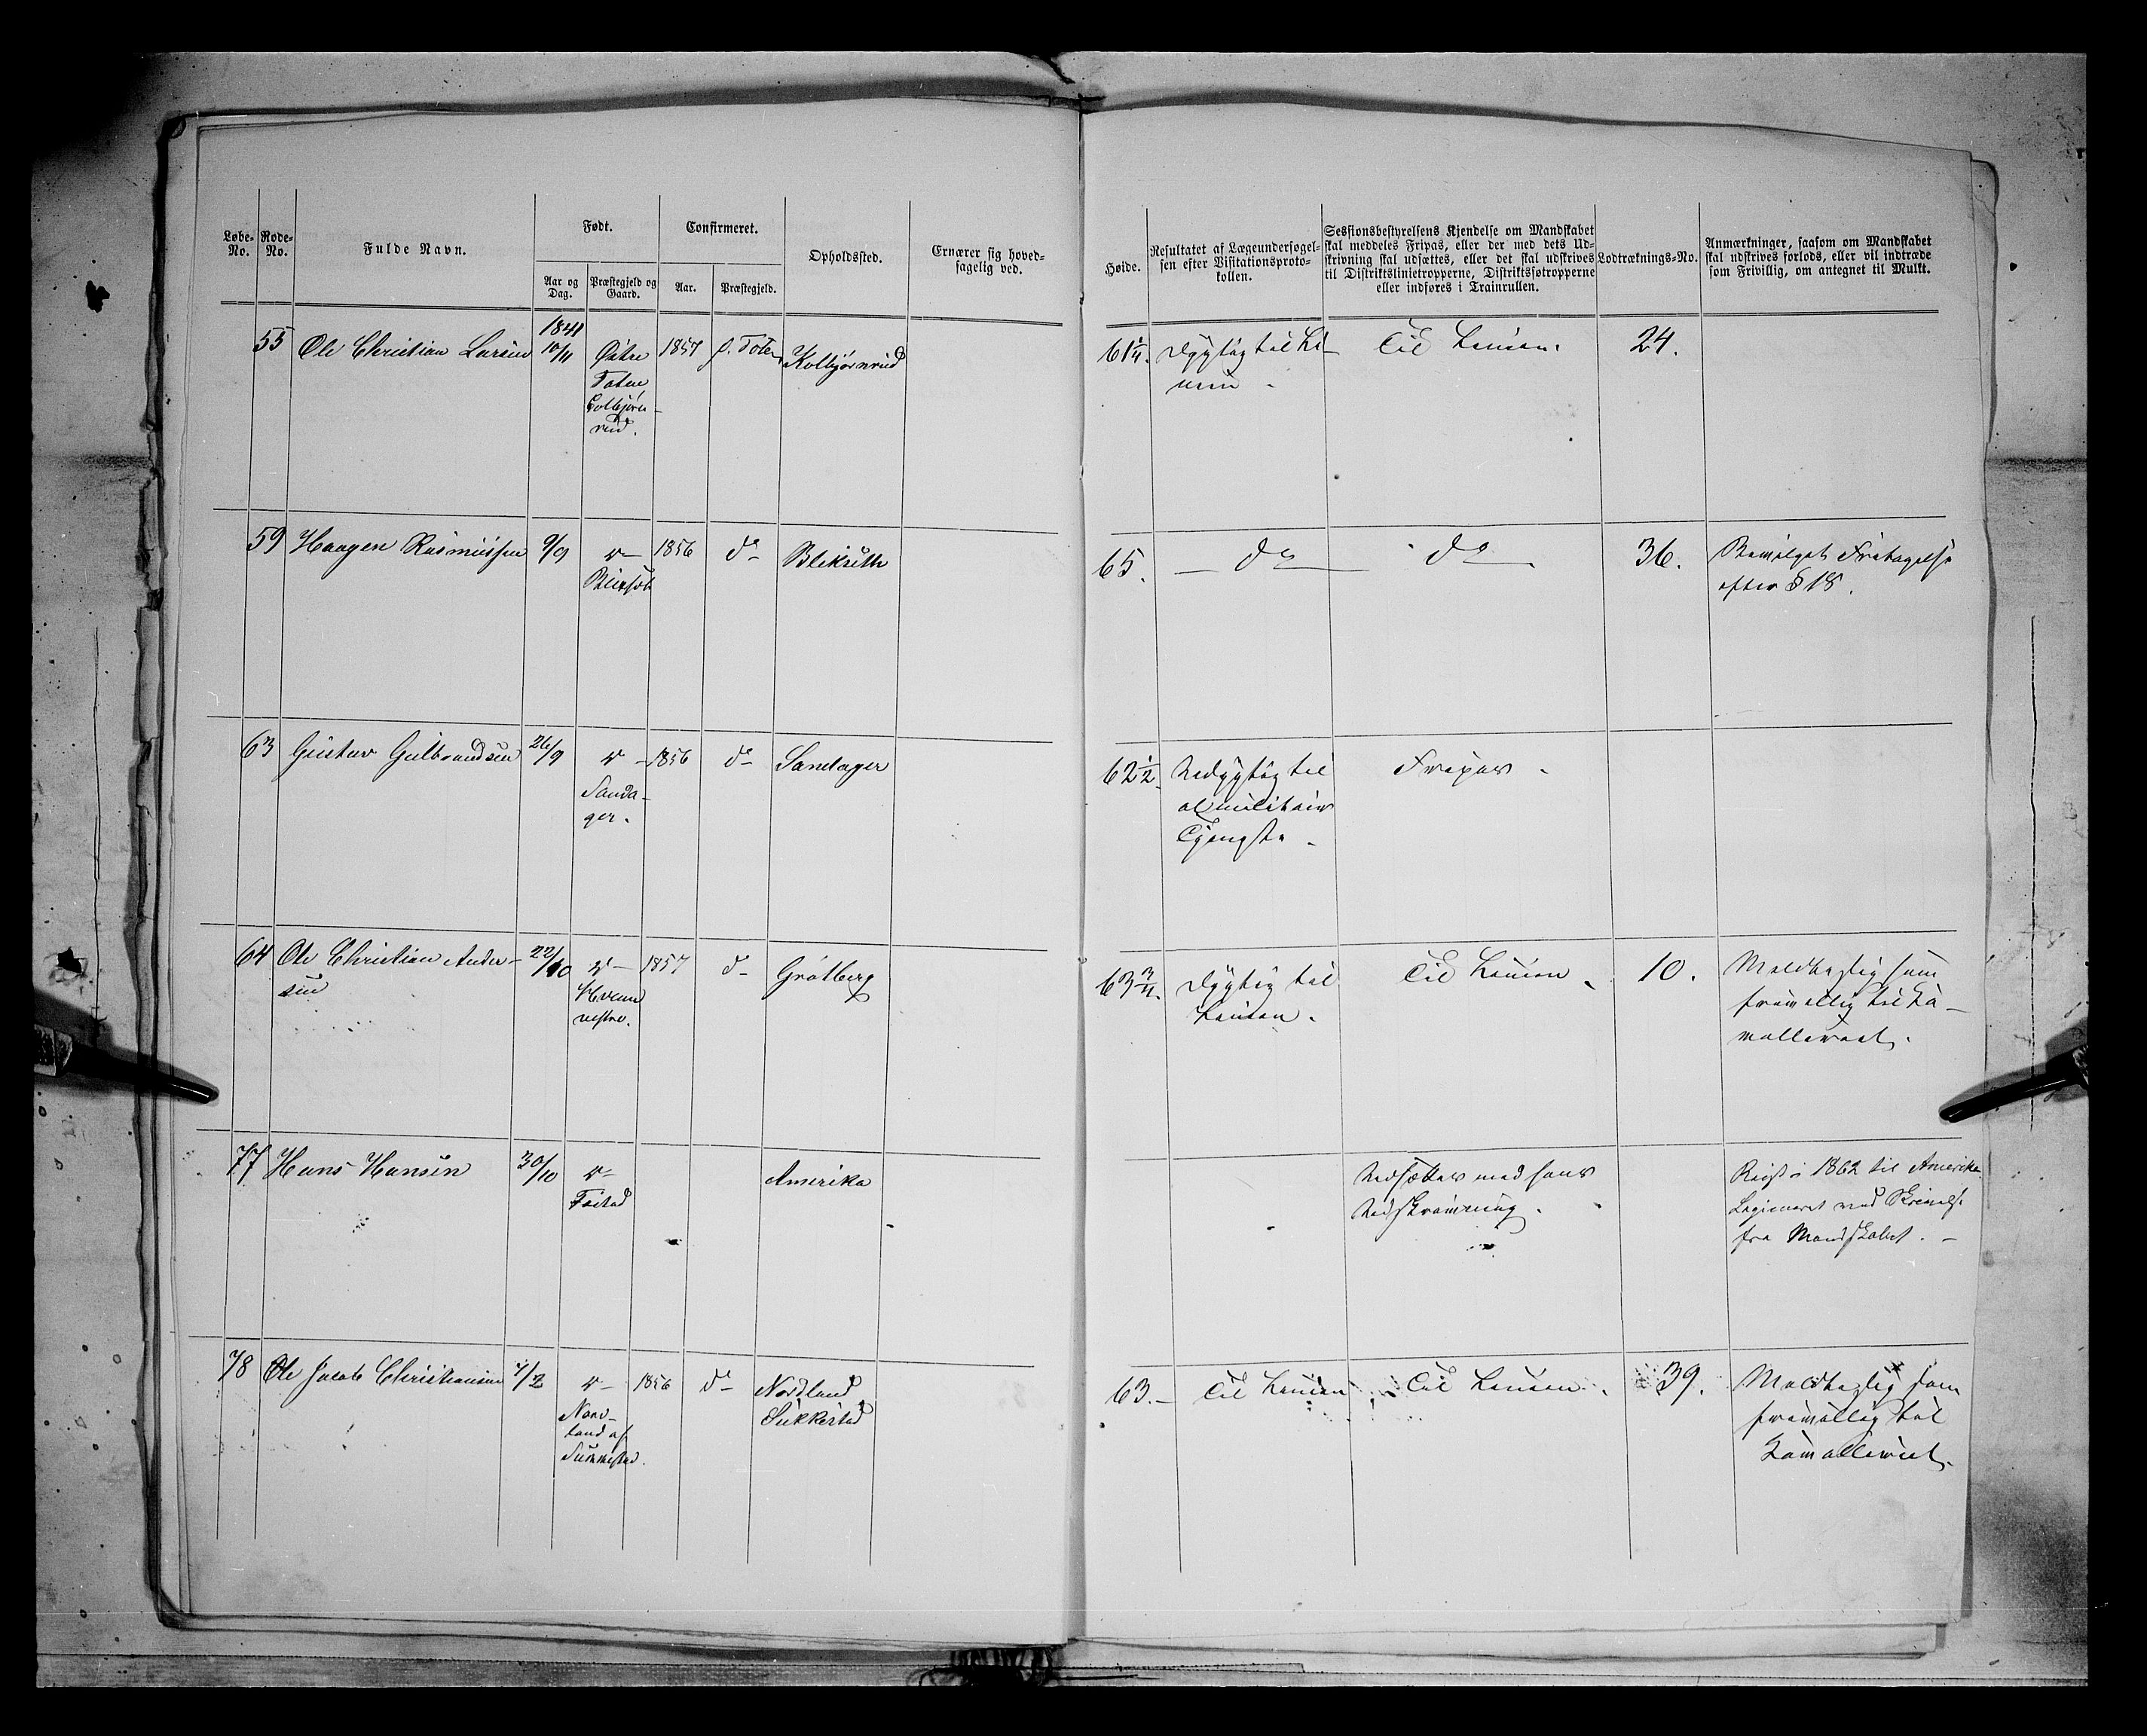 Løbe-No.
Rode-No.
Fulde Navn.
Født.
Aar og Dag.
Præstegjeld og Gaard.
Confirmeret.
Aar.
Præstegjeld.
Opholdssted.
Ernærer sig hovedsagelig ved.
Høide.
Resultatet af Lægeundersøgelsen efter Visitationsprotokollen.
Sessionsbestyrelsens Kjendelse om Mandskabet
skal meddeles Fripas, eller der med dets Ud-
skrivning skal udsættes, eller det skal udskrives
til Distriktslinietropperne, Distriktsføtropperne
eller indføres i Trainrullen.
Lodtræknings-No.
Anmærkninger, saasom om Mandskabet
skal udskrives forlods, eller vil indtræde
som Frivillig, om antegnet til Mulkt.
55 Ole Christian Larsen 1841 10/11 Østre 1857 Ø. Toten Kolbjørnrud 61 1/4. Dygtig til Li- Til Linien. 24.
Toten
Colbjørn-
rud.
nien.
59 Haagen Rasmussen 9/9 1856 do Blikseth 65. do do 36. Bevilget Fritagelse
efter § 18.
63 Gustav Gulbrandsen 26/9 1856 do Sandager 62 1/2. Udygtig til Fripas.
Sanda-
ger.
al militair
Tjeneste.
64 Ole Christian Ander- 22/10 1857 do Grøtberg 63 3/4. Dygtig til Til Linien. 10. Meldte sig som
sen
Hveem
vestre.
Linien.
frivillig til Ca-
valleriet.
77 Hans Hansen 30/10 Amerika Udsættes med hans Reist i 1862 til Amerika.
Udskrivning.
fra Mandskabet.
78 Ole Jacob Christiansen 7/2 1856 do Nordland 63. Til Linien Til Linien. 39. Meldte sig som
Nord-
land af
Sukkestad
frivillig til
Cavalleriet.